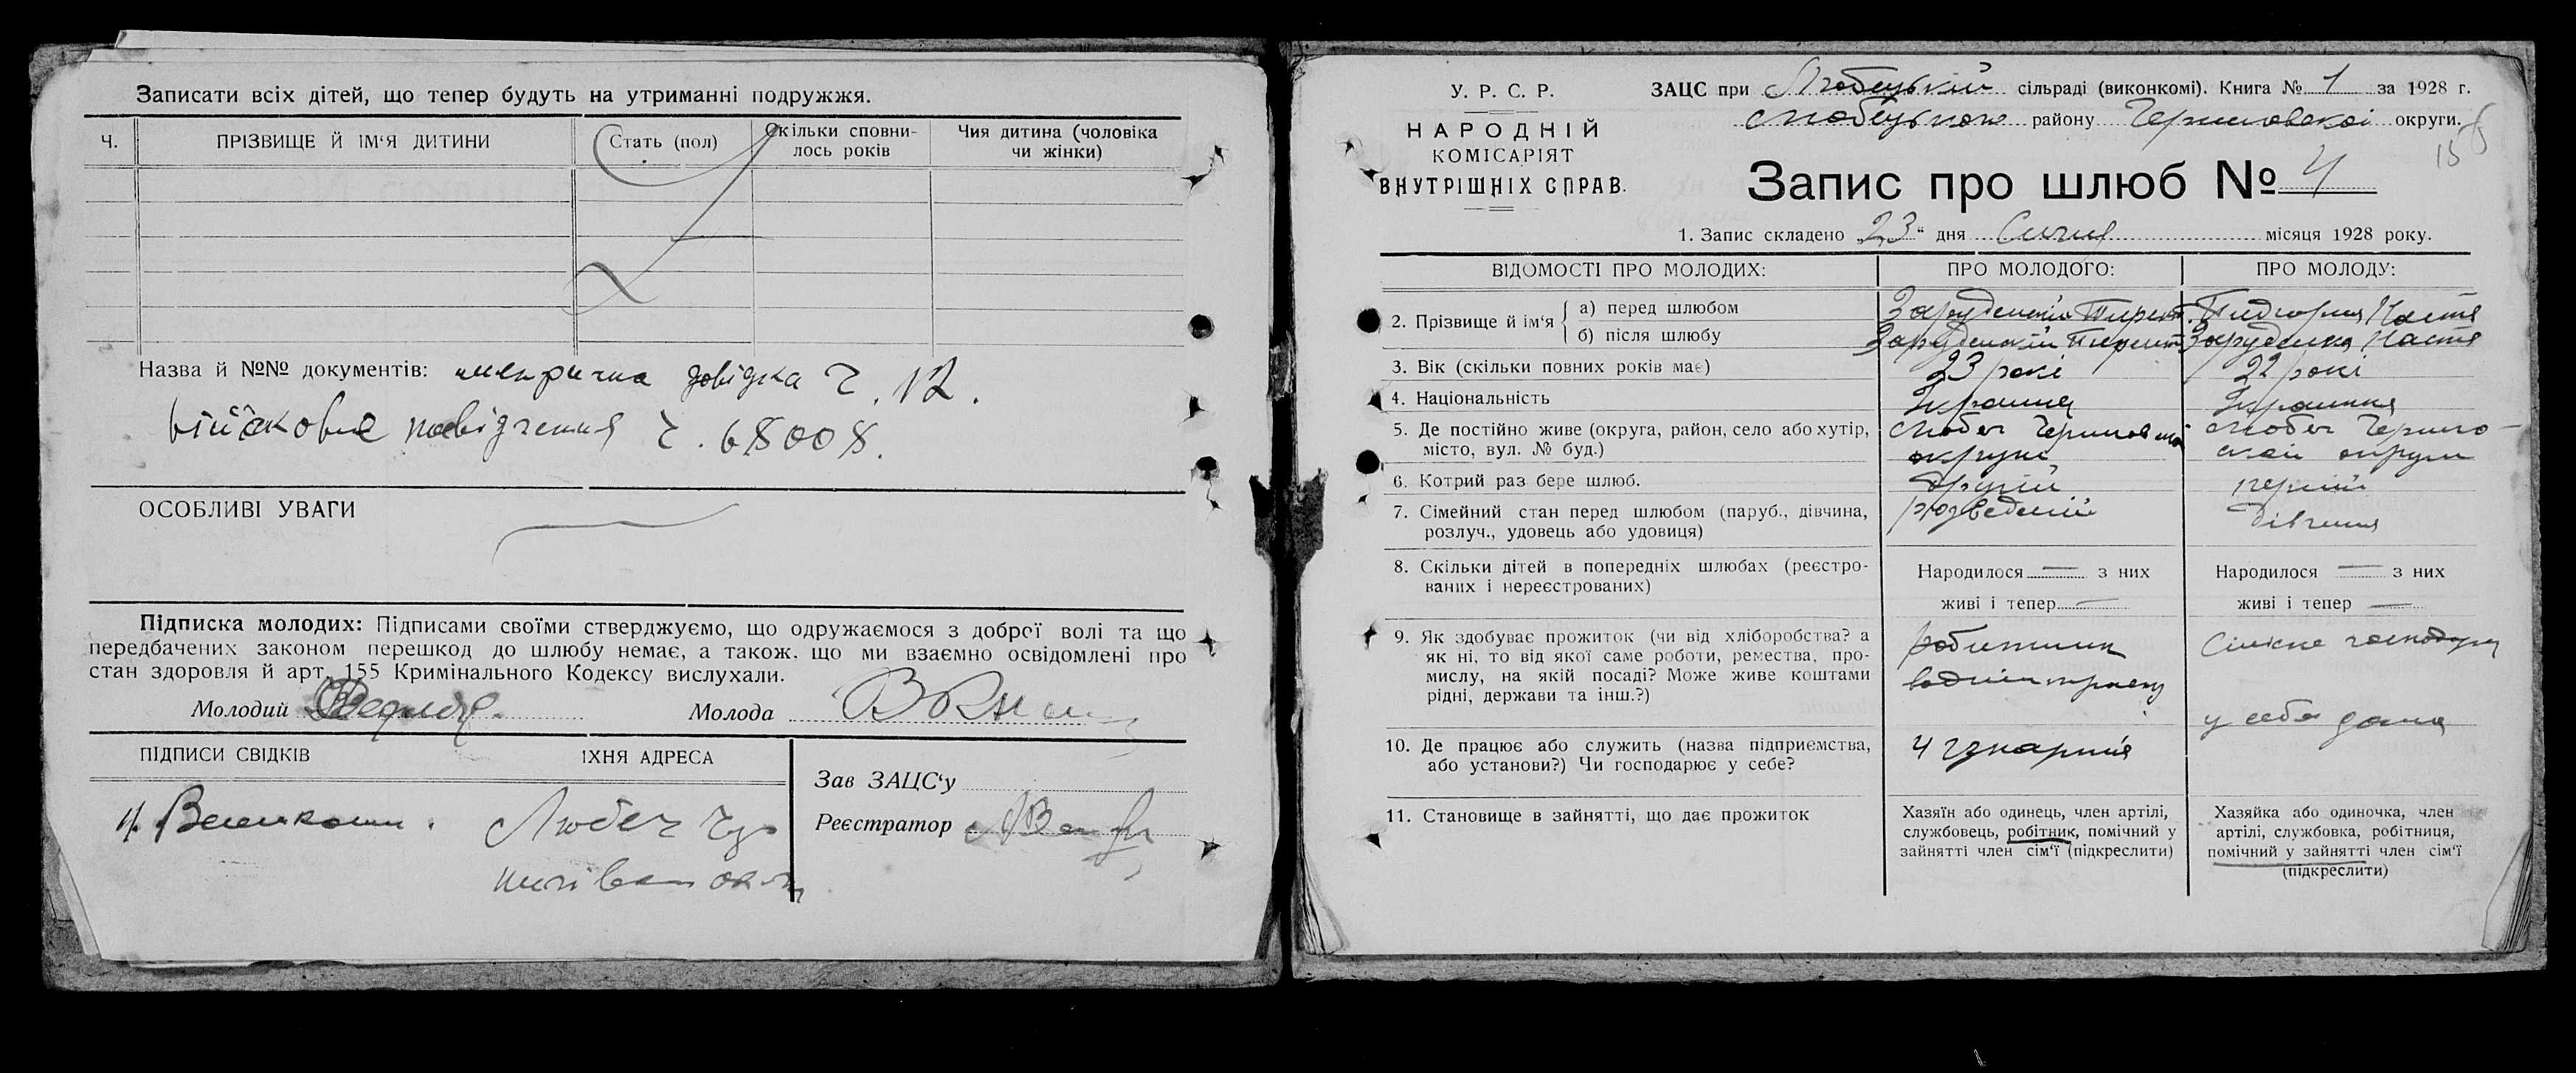 Записати всіх дітей, що тепер будуть на утриманні подружжя.
Ч.
ПРІЗВИЩЕ Й ІМ‘Я ДИТИНИ
Стать (пол)
Скільки сповни-
лось років
Чия дитина (чоловіка
чи жінки)
Назва й №№ документів: довідка Ч. 12.
Ч. 68008.
ОСОБЛИВІ УВАГИ
Підписка молодих: Підписами своїми стверджуємо, що одружаємося з доброї волі та що
передбачених законом перешкод до шлюбу немає, а також. що ми взаємно освідомлені про
стан здоровля й арт. 155 Кримінального Кодексу вислухали.
Молодий
Молода
ПІДПИСИ СВІДКІВ
ЇХНЯ АДРЕСА
Любеч
Зав ЗАЦС‘у
Реєстратор
У. Р. С. Р.
НАРОДНІЙ
КОМІСАРІЯТ
ВНУТРІШНІХ СПРАВ.
ЗАЦС при Любецькій сільраді (виконкомі). Книга № 1 за 1928 г.
Любецького району округи.
15
Запис про шлюб № 4
1. Запис складено „23“ дня Січня місяця 1928 року.
ВІДОМОСТІ ПРО МОЛОДИХ:
ПРО МОЛОДОГО:
ПРО МОЛОДУ:
2. Прізвище й ім‘я
а) перед шлюбом
Настя
б) після шлюбу
Настя
3. Вік (скільки повних років має)
23 роки
22 роки
4. Національність
5. Де постійно живе (округа, район, село або хутір,
місто, вул. № буд.)
Любеч
округи
Любеч
округи
6. Котрий раз бере шлюб.
другий
перший
7. Сімейний стан перед шлюбом (паруб., дівчина,
розлуч., удовець або удовиця)
розведений
дівчина
8. Скільки дітей в попередніх шлюбах (реєстро-
ваних і нереєстрованих)
Народилося — з них
живі і тепер —
Народилося — з них
живі і тепер —
9. Як здобуває прожиток (чи від хліборобства? а
як ні, то від якої саме роботи, ремества, про-
мислу, на якій посаді? Може живе коштами
рідні, держави та інш.?)
робітник
10. Де працює або служить (назва підприємства,
або установи?) Чи господарює у себе?
у себе дома
11. Становище в зайнятті, що дає прожиток
Хазяїн або одинець, член артілі,
службовець, робітник, помічний у
зайнятті член сім‘ї (підкреслити)
Хазяйка або одиночка, член
артілі, службовка, робітниця,
помічний у зайнятті член сім‘ї
(підкреслити)